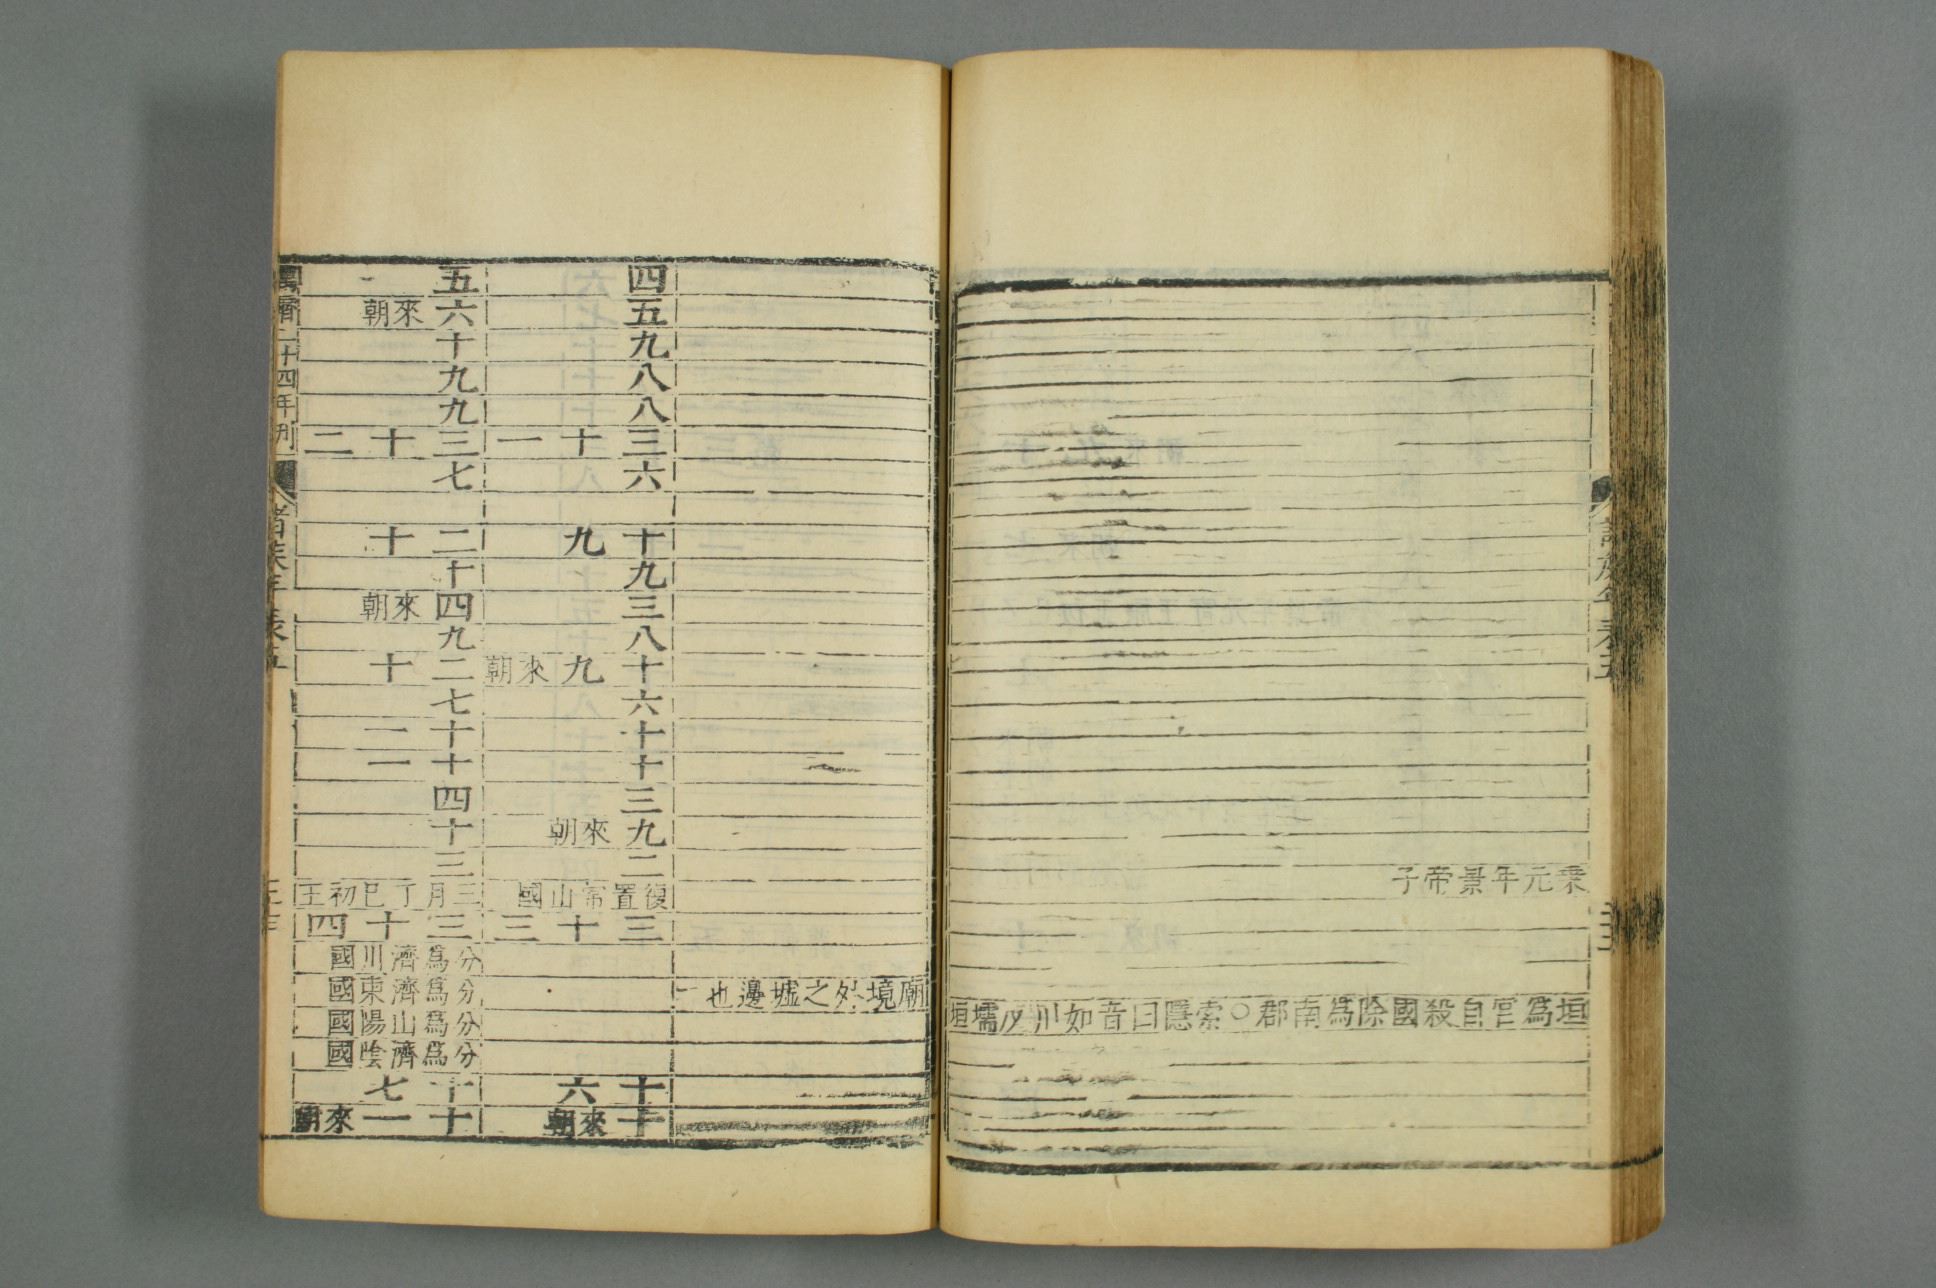 乗元年景帝子
垣爲宮自殺國除爲南郡○索隱曰音如川反壖垣
廟境外之墟邊也
四
五
九
八
八
三十一
六
十九
九
三
八
十九來朝
六
十
十
三
九來朝
二
復置常山國
三十三
十六
十來朝
五
六來朝
十
九
九
三十二
七
二十
十
四來朝
九
二十
七
十一
十一
四
十
三
三月丁巳初王
三十四
分爲濟川國
分爲濟東國
分爲山陽國
分爲濟陰國
十七
十一來朝
萬曆二十四年刊
諸侯年表五